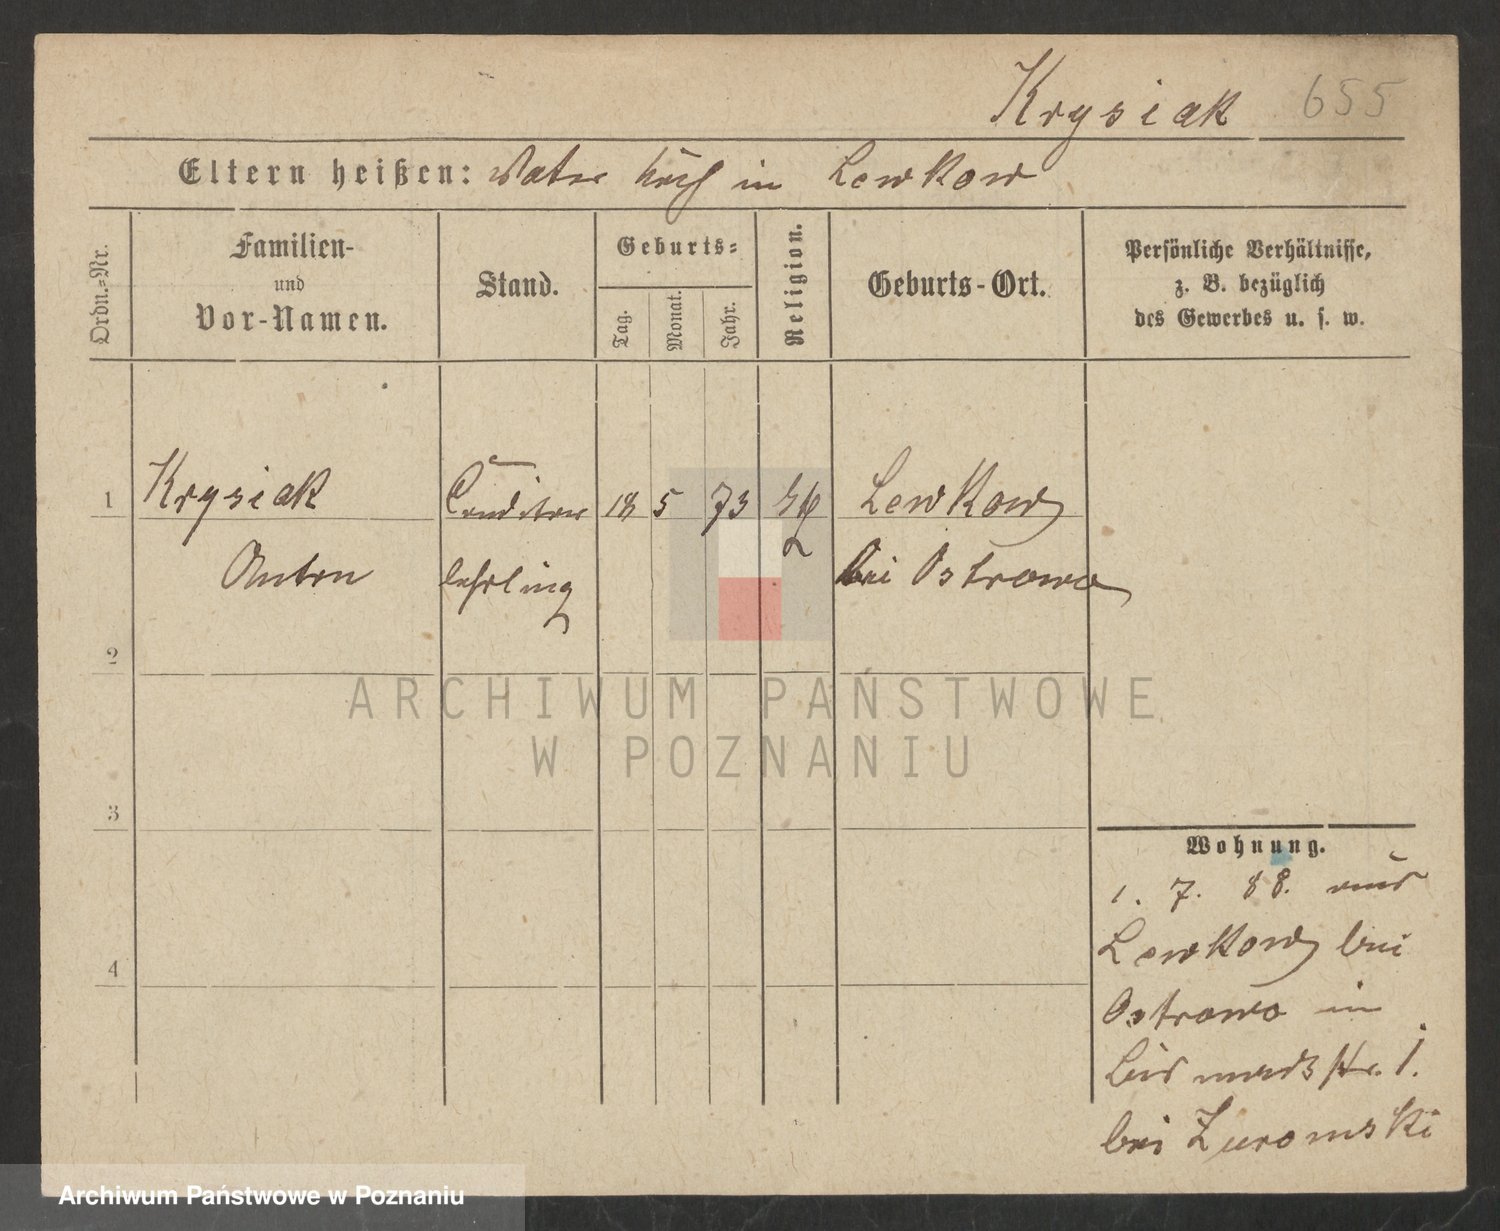 Krysiak 655
Eltern heißen: Vater Koch in Lewkow
Ordn.-Nr.
Familien-
und
Vor-Namen.
Stand.
Geburts-
Tag.
Monat.
Jahr.
Religion.
Geburts-Ort.
Persönliche Verhältnisse,
z. B. bezüglich
des Gewerbes u. s. w.
1 Krysiak Conditor 18 5 73 Lewkow
Anton lehrling bei Ostrowo
2
3
4
ARCHIWUM PAŃSTWOWE
W POZNANIU
Wohnung.
1. 7. 88. aus
Lewkow bei
Ostrowo in
Bismarckstr. 1.
bei Zuromski
Archiwum Państwowe w Poznaniu